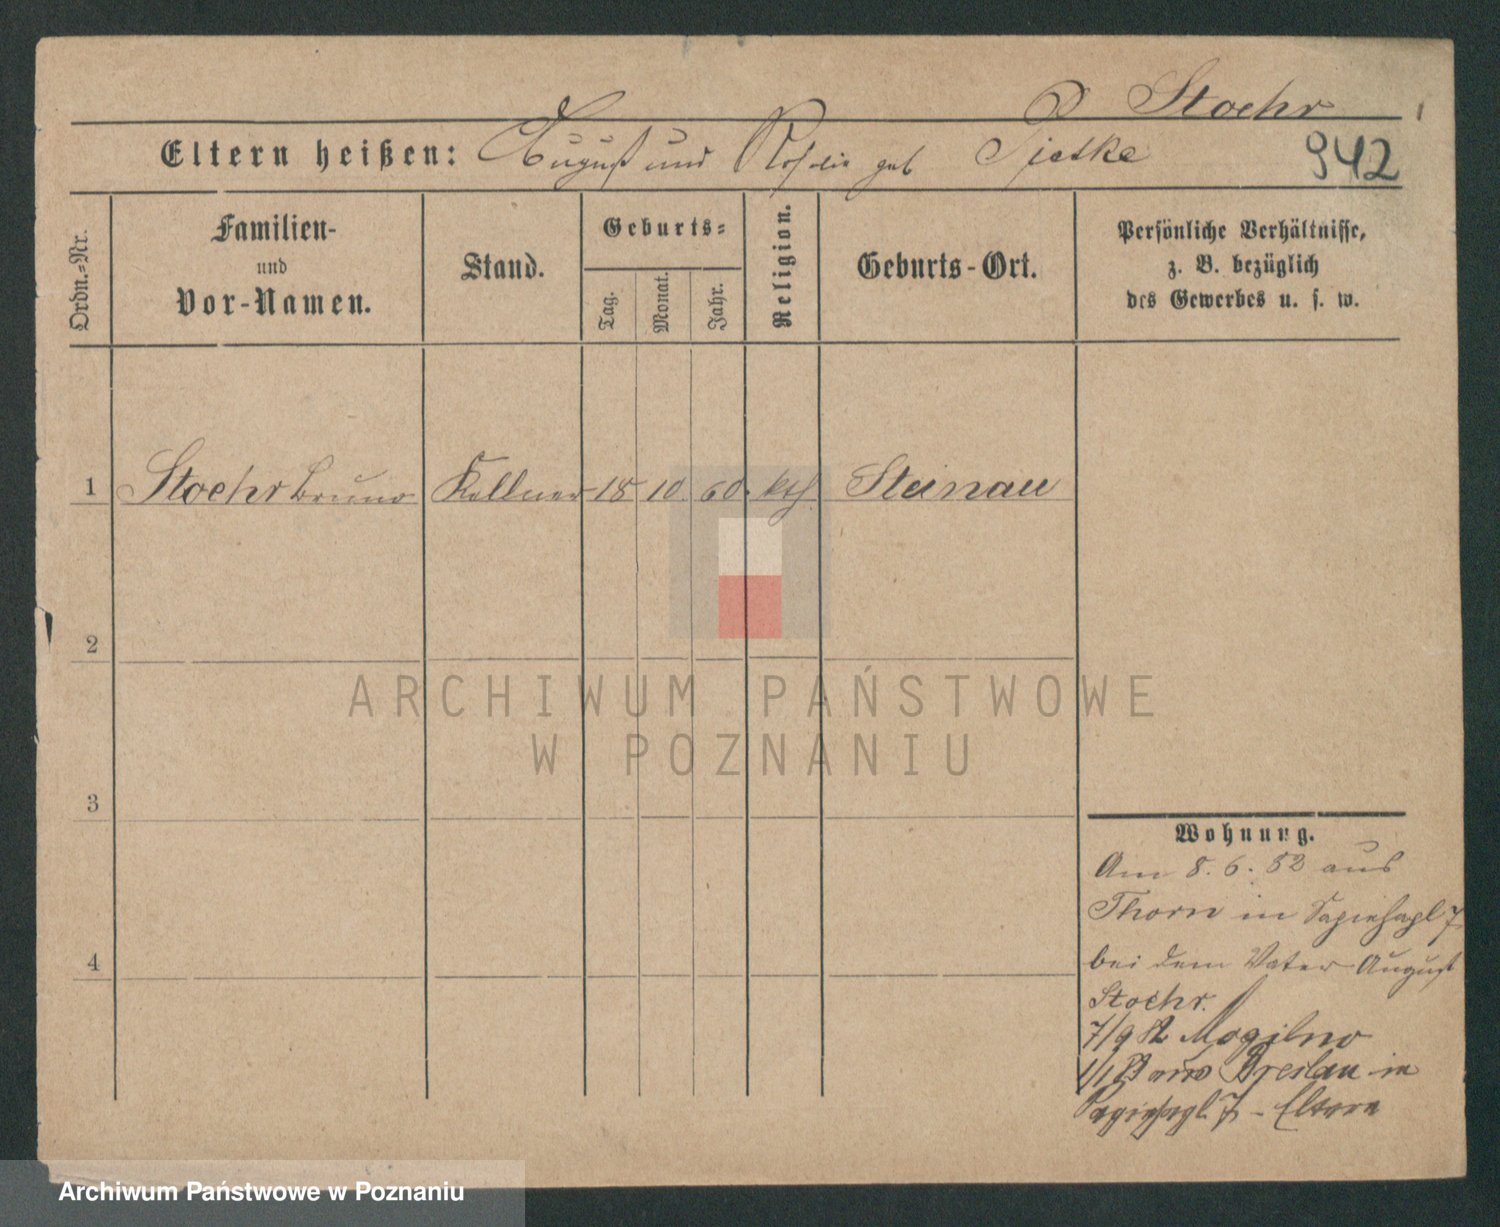 Stoehr
Eltern heißen: August und Rosalie geb Tietke
942
Ordn.-Nr.
Familien-
und
Vor-Namen.
Stand.
Geburts-
Tag.
Monat.
Jahr.
Religion.
Geburts-Ort.
Persönliche Verhältnisse,
z. B. bezüglich
des Gewerbes u. s. w.
1 Stoehr Bruno Kellner 18 10. 60. kth. Steinau
2
3
4
Wohnung.
Am 8. 6. 82 aus
Thorn in Sapiehapl 7
bei dem Vater August
Stoehr.
7/9 82 Mogilno
1/1 83 aus Breslau in
Sapiehapl. 7 - Eltern
ARCHIWUM PAŃSTWOWE
W POZNANIU
Archiwum Państwowe w Poznaniu